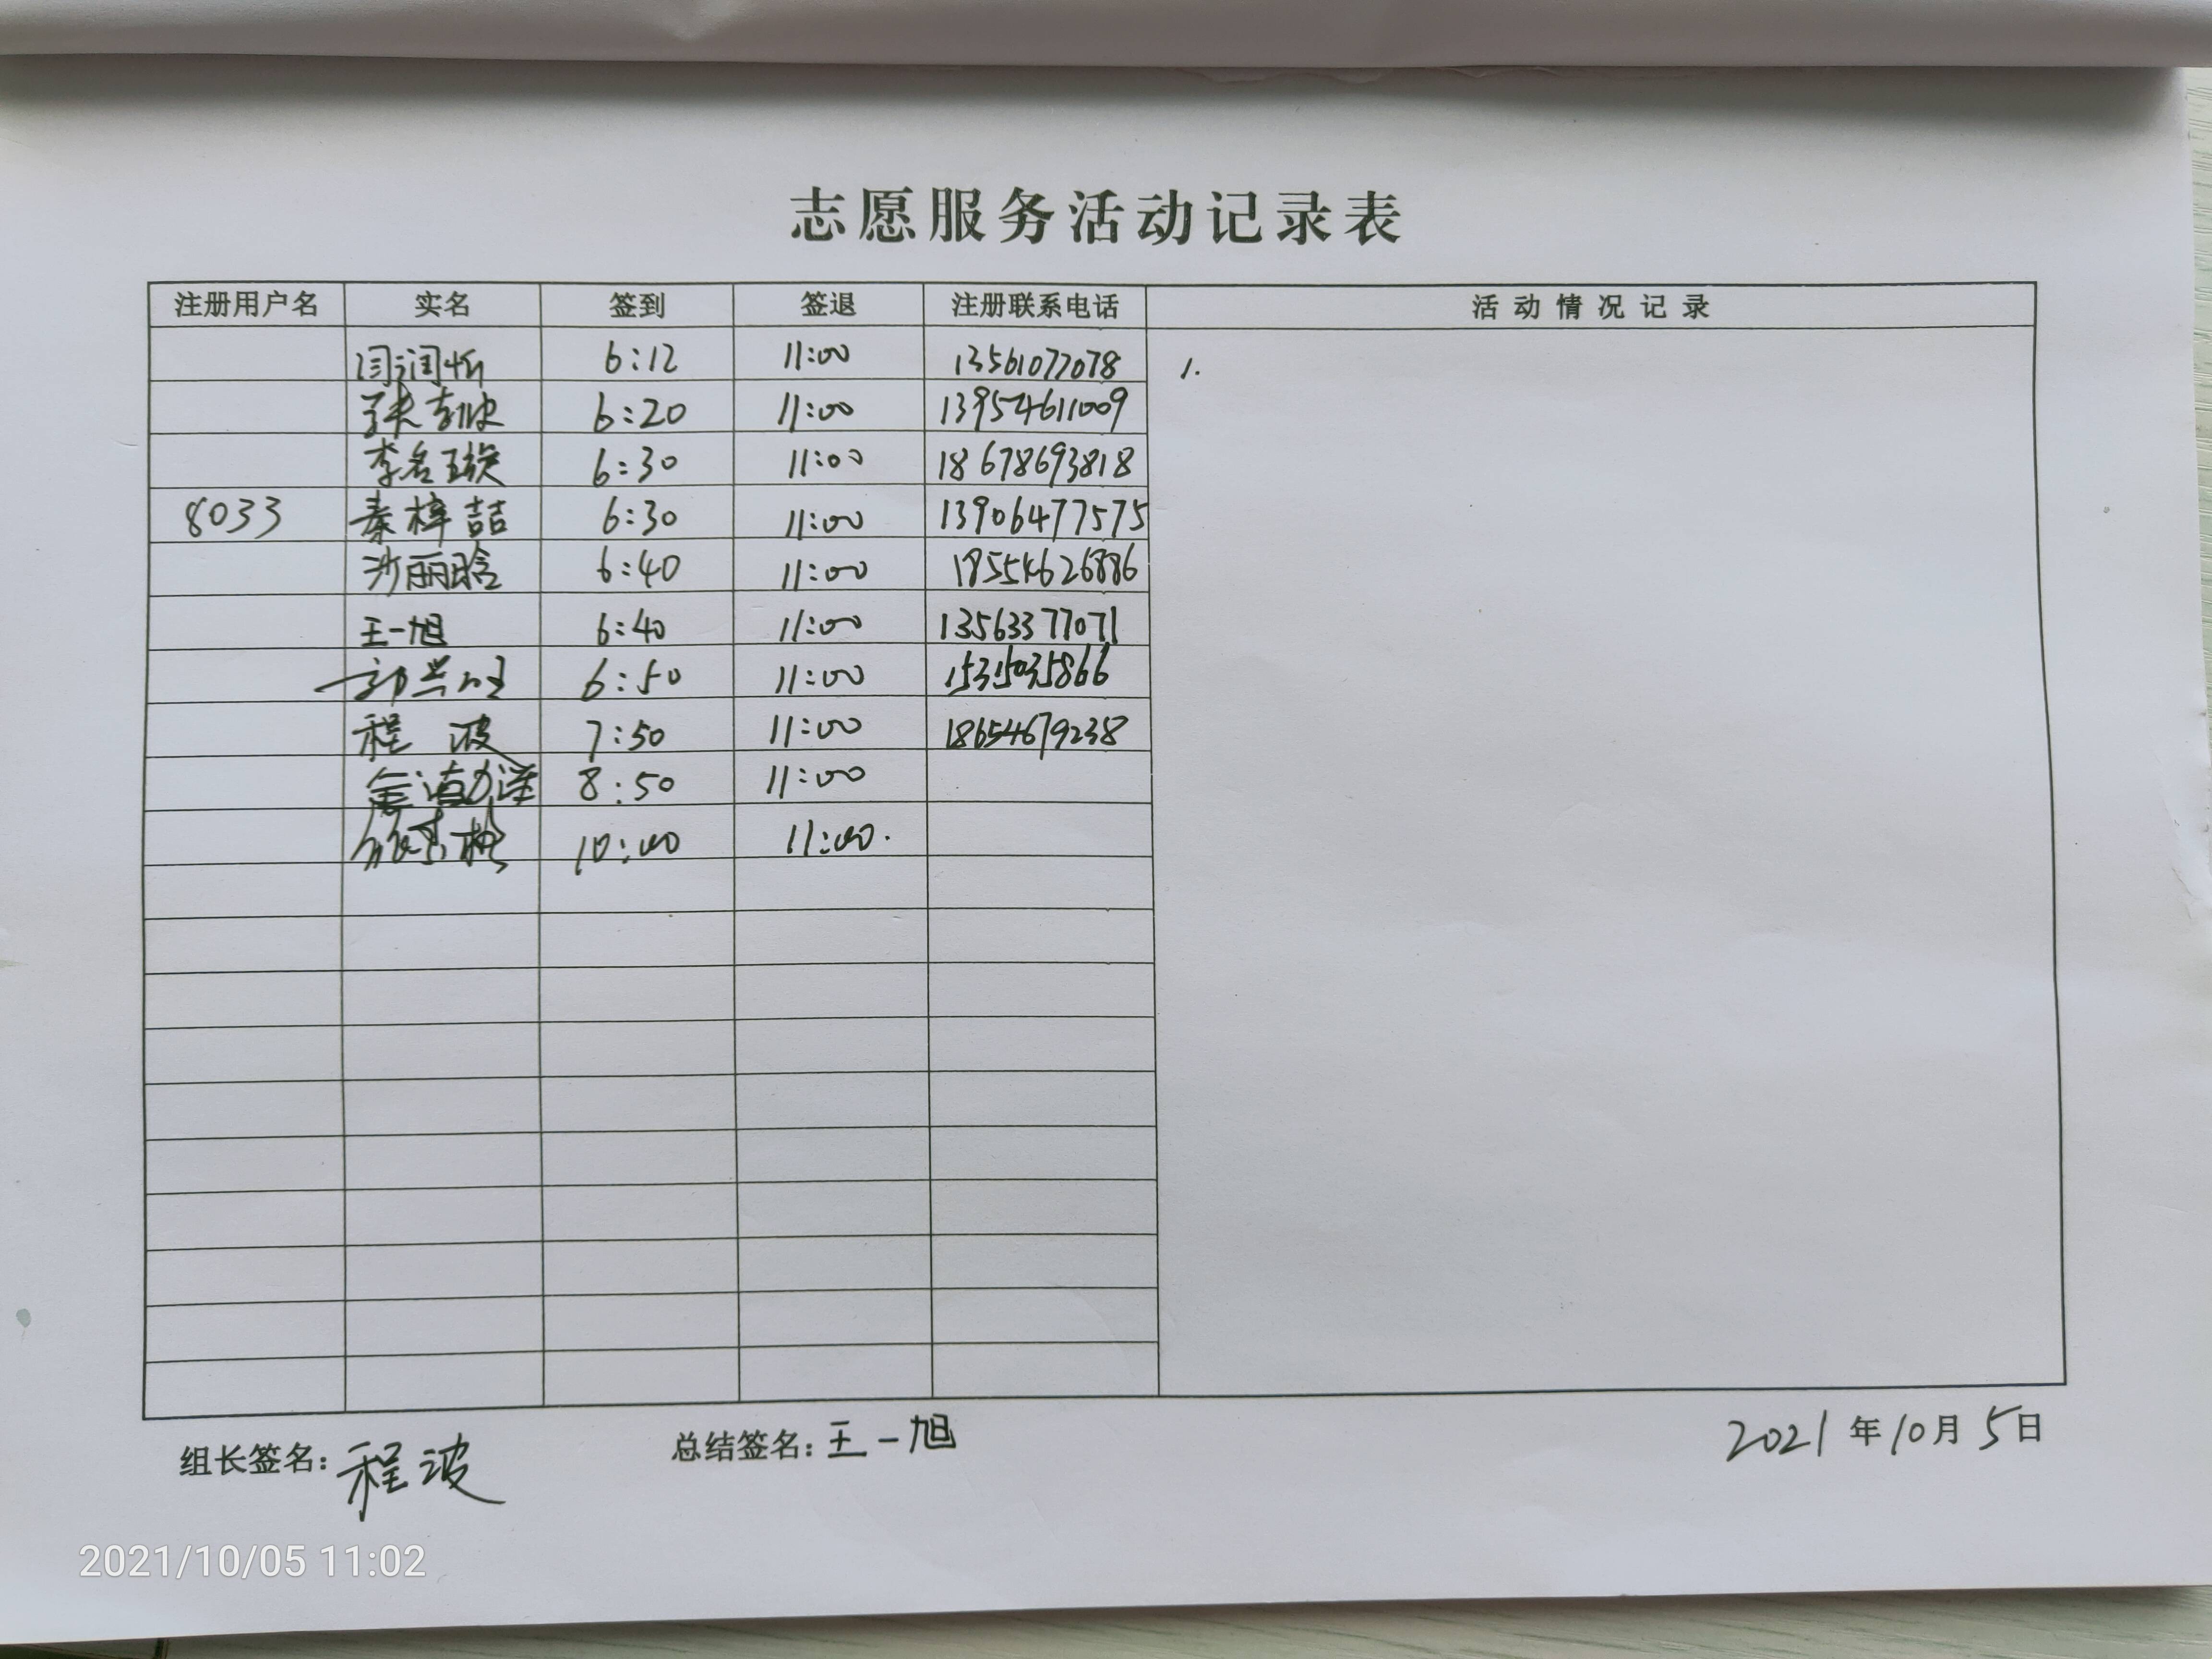 志愿服务活动记录表
注册用户名 实名 签到 签退 注册联系电话 活动情况记录
闫润忻 6:12 11:00 13561077078 1.
6:20 11:00 13954611009
李名璇 6:30 11:00 18678693818
8033 秦梓喆 6:30 11:00 13906477575
沙丽晗 6:40 11:00 18554626886
王一旭 6:40 11:00 13563377071
6:50 11:00 15315035866
程波 7:50 11:00 18654679238
8:50 11:00
10:00 11:00.
组长签名：程波 总结签名：王一旭 2021年10月5日
2021/10/05 11:02